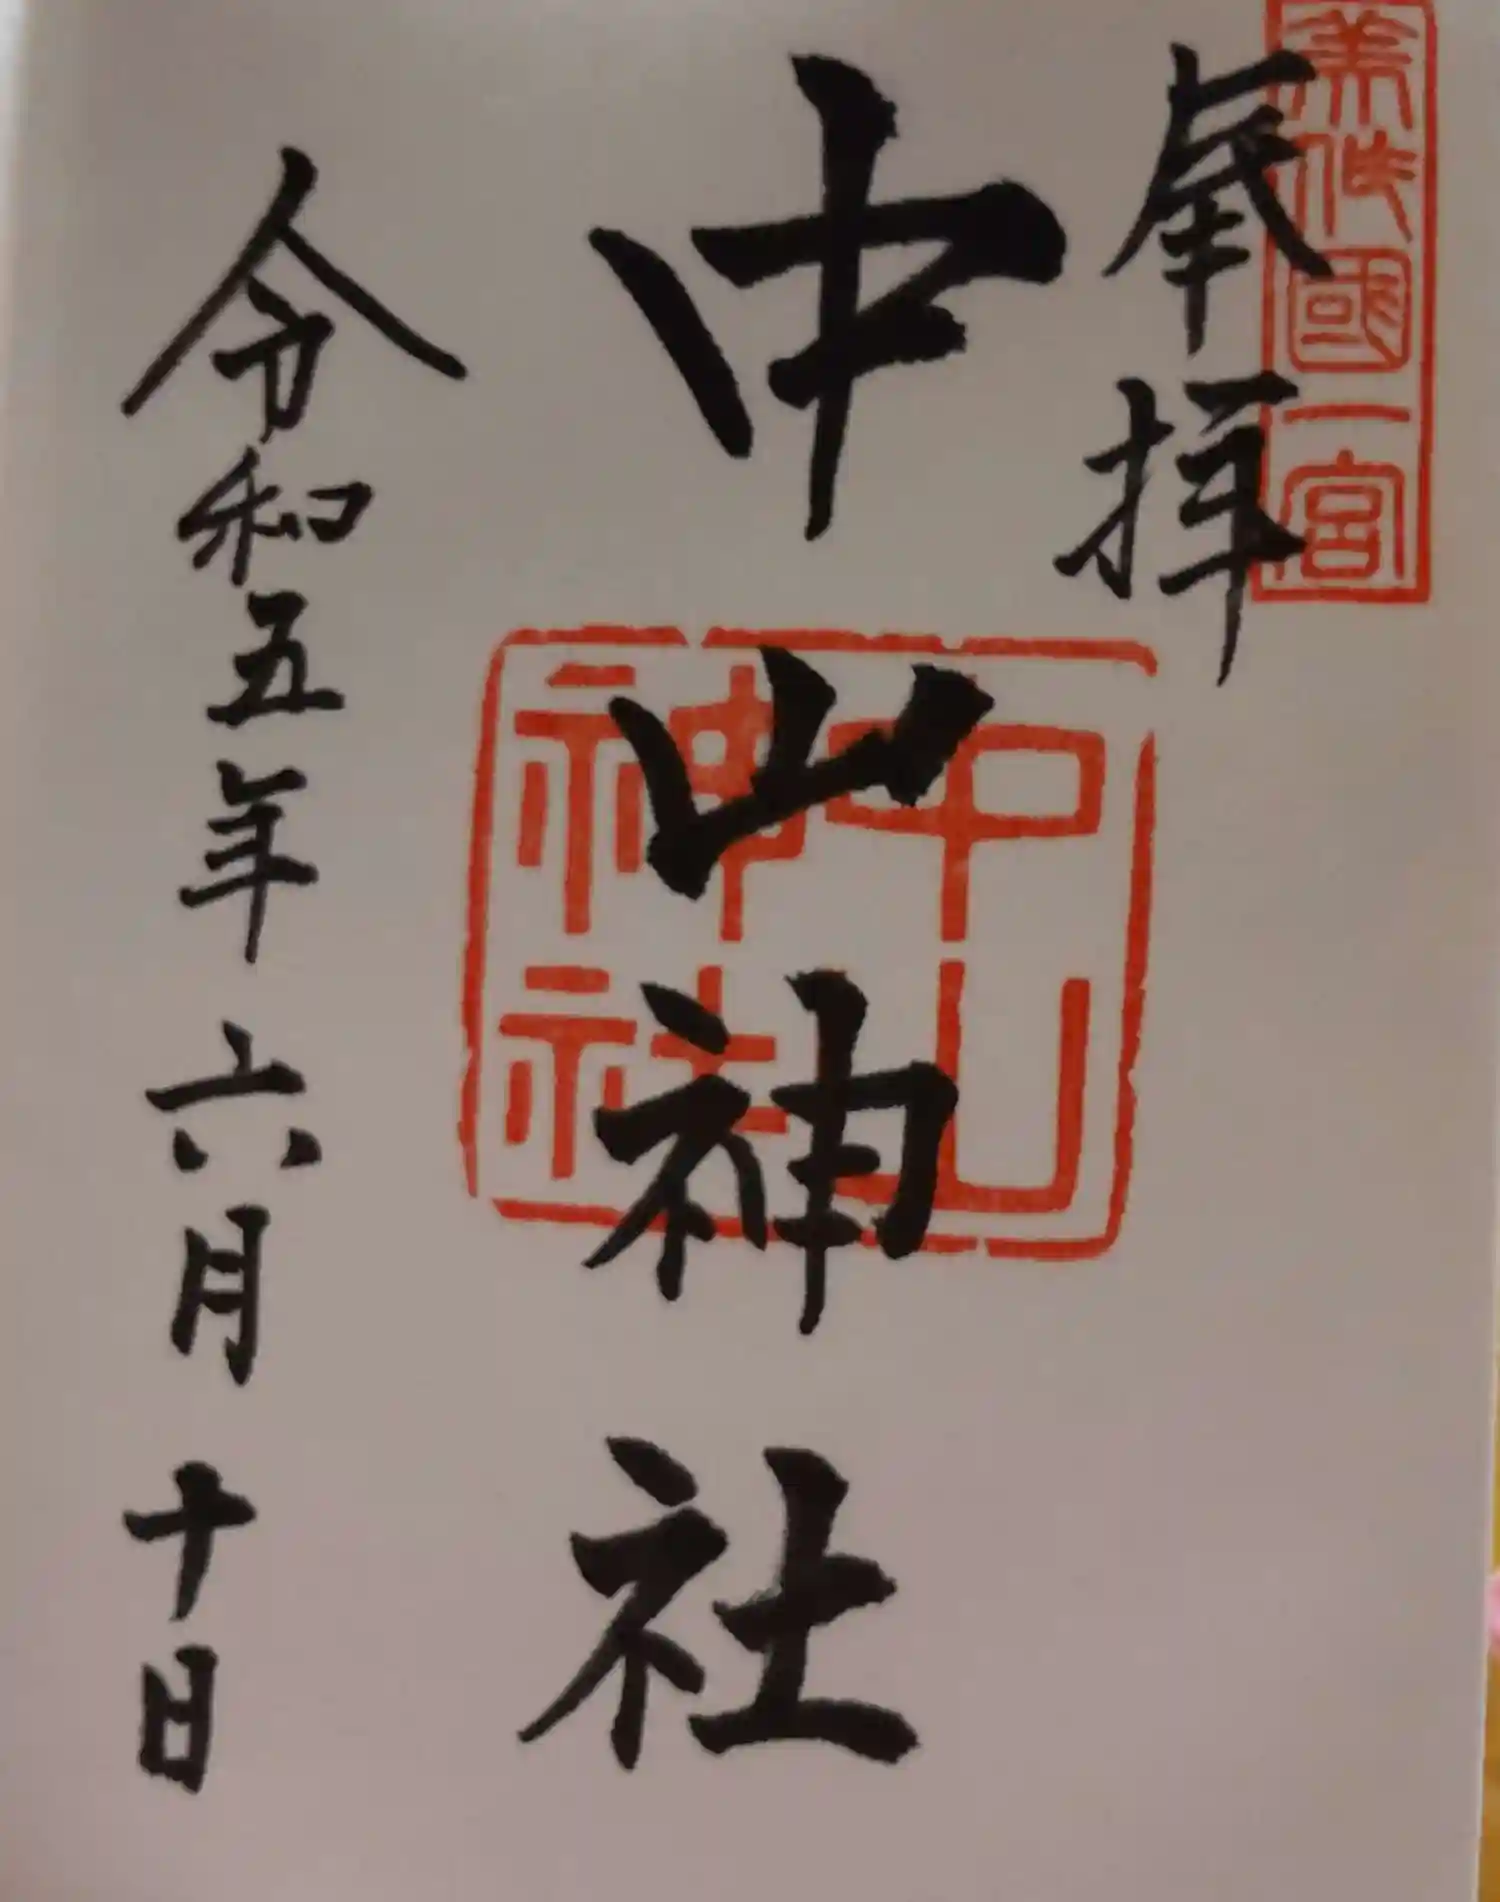 美作國一宮
奉拝
中山神社
中山
神社
令和五年六月十日